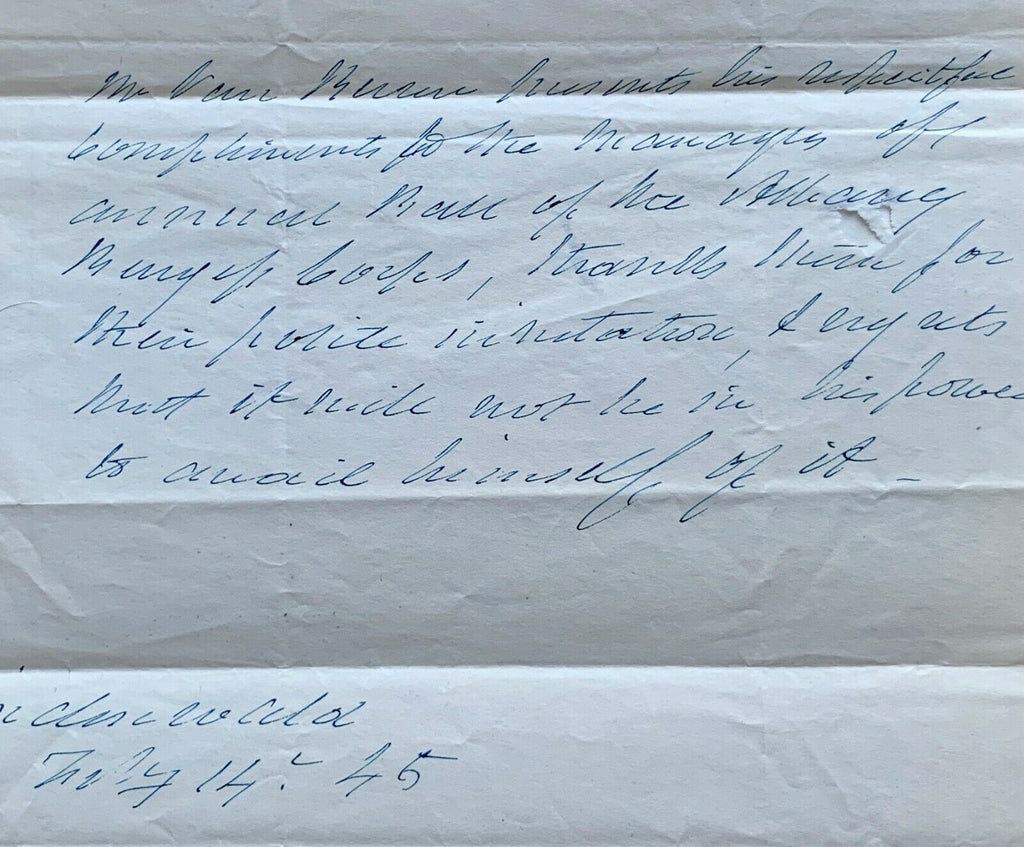 Mr Van Buren presents his respectful
compliments to the managers of
annual Ball of the Albany
Burgess Corps, thanks them for
their polite invitation, & regrets
that it will not be in his power
to avail himself of it _
indenwald
Feby 14. 45